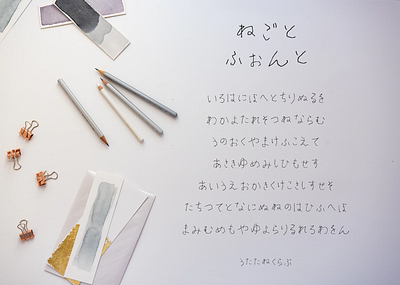 ねごと
ふぉんと
いろはにほへとちりぬるを
わかよたれそつねならむ
うのおくやまけふこえて
あさきゆめみしひもせす
あいうえおかきくけこさしすせそ
たちつてとなにぬねのはひふへほ
まみむめもやゆよらりるれろわをん
うたたねくらぶ